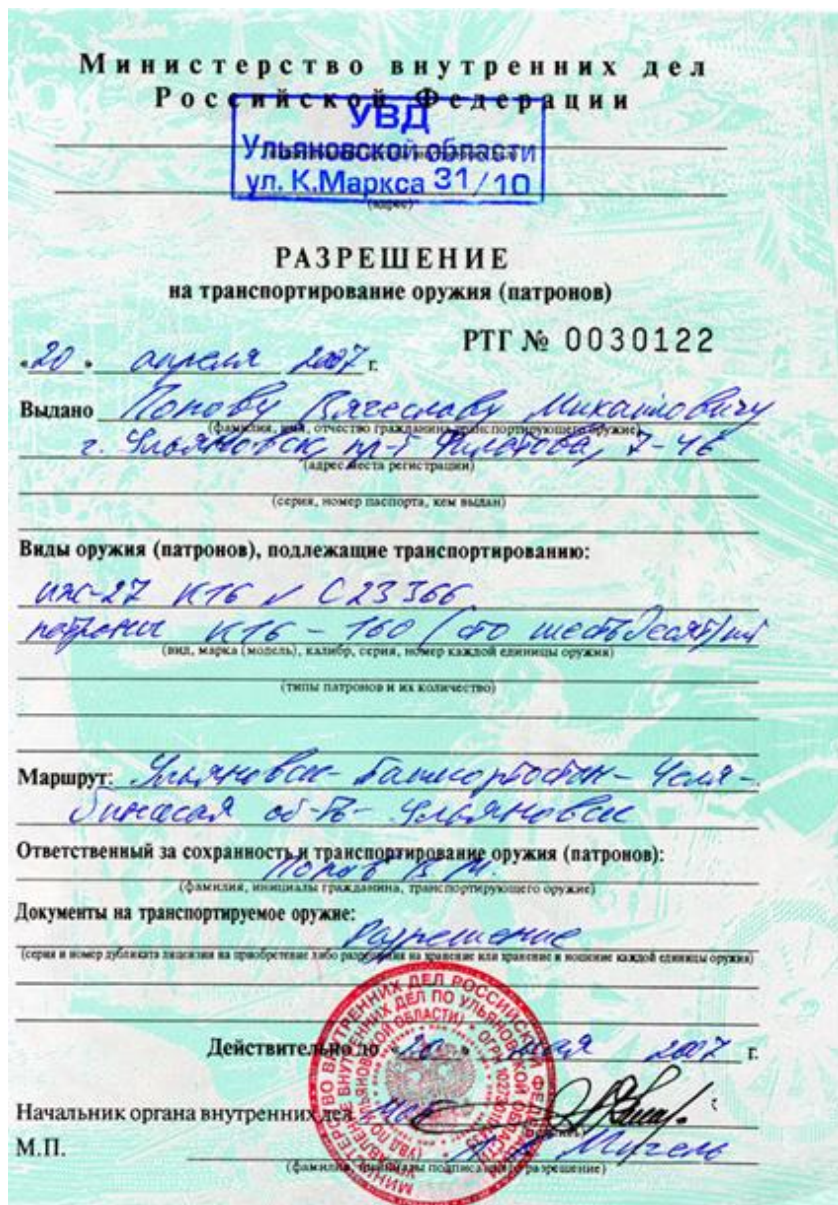 Министерство внутренних дел
Российской Федерации
УВД
Ульяновской области
ул. К.Маркса 31/10
(адрес)
РАЗРЕШЕНИЕ
на транспортирование оружия (патронов)
РТГ № 0030122
«20» апреля 2007 г.
Выдано Попову Вячеславу Михайловичу
(фамилия, имя, отчество гражданина транспортирующего оружие)
г. Ульяновск, пр-т Филатова, 7-46
(адрес места регистрации)
(серия, номер паспорта, кем выдан)
Виды оружия (патронов), подлежащие транспортированию:
ИЖ-27 К16 № С23366
патроны К16 - 160 (сто шестьдесят) шт
(вид, марка (модель), калибр, серия, номер каждой единицы оружия)
(типы патронов и их количество)
Маршрут: Ульяновск - Башкортостан - Челя-
бинская об-ть - Ульяновск
Ответственный за сохранность и транспортирование оружия (патронов):
Попов В.М.
(фамилия, инициалы гражданина, транспортирующего оружие)
Документы на транспортируемое оружие:
Разрешение
(серия и номер дубликата лицензии на приобретение либо разрешения на хранение или хранение и ношение каждой единицы оружия)
Действительно до «20» мая 2007 г.
Начальник органа внутренних дел
М.П. Мигель
(фамилия, инициалы подписавшего разрешение)
МИНИСТЕРСТВО ВНУТРЕННИХ ДЕЛ РОССИЙСКОЙ ФЕДЕРАЦИИ